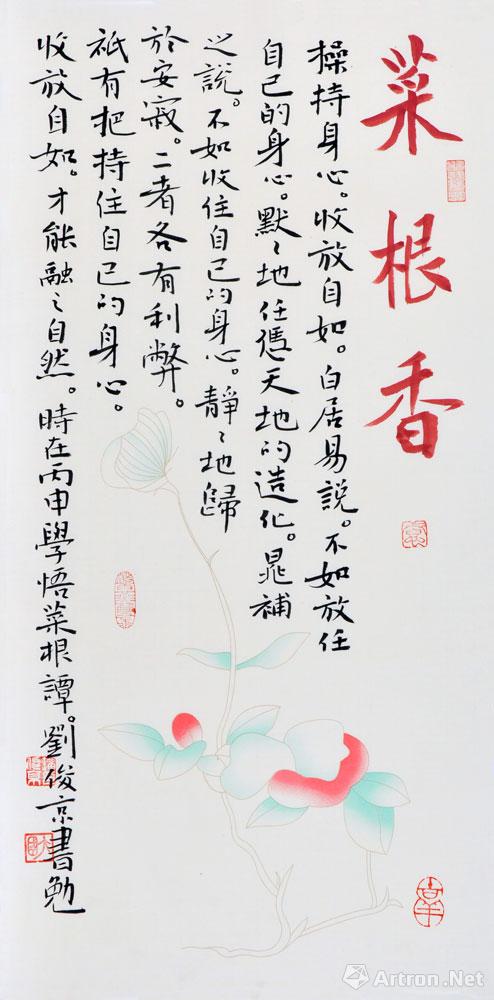 菜根香
操持身心。收放自如。白居易說。不如放任
自己的身心。默〻地任憑天地的造化。晁補
之說。不如收住自己的身心。靜〻地歸
於安寂。二者各有利弊。
祇有把持住自己的身心。
收放自如。才能融之自然。時在丙申學悟菜根譚。劉俊京書勉
Artron.Net